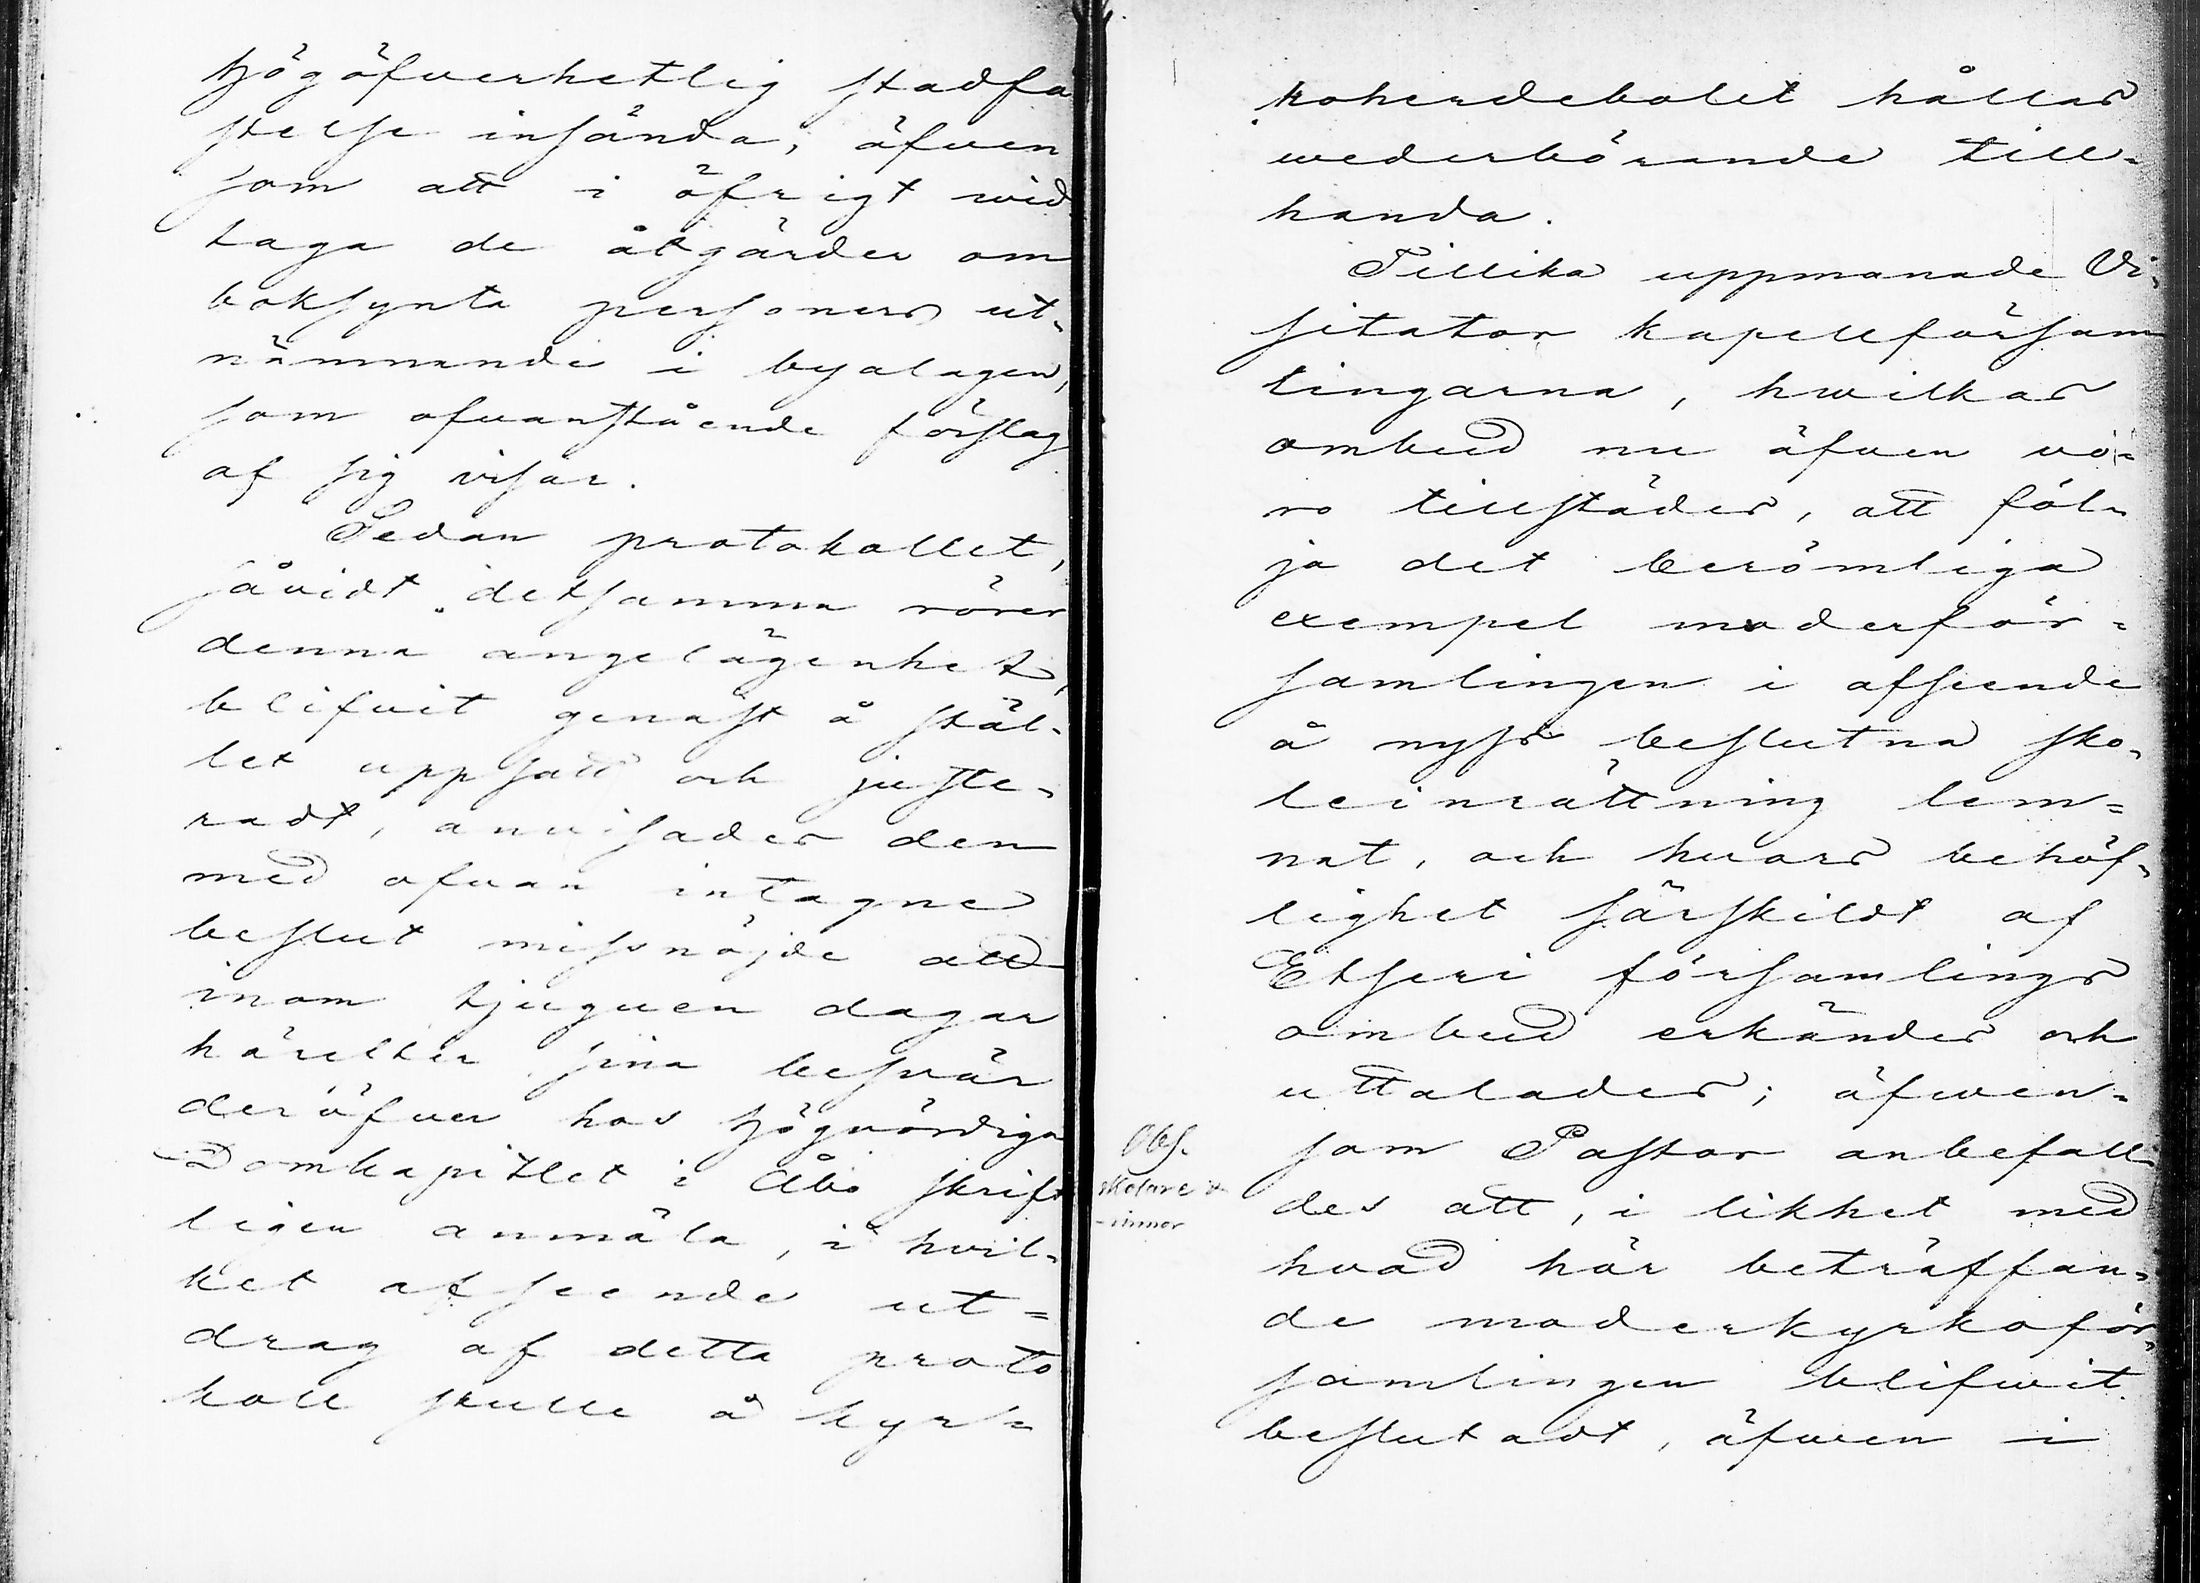 högöfverhetlig stadfä
stelse insända, äfven
som att i öfrigt wid
taga de åtgärder om
boksynta personers ut-
nämnande i byalagen,
som ofvanstående förslag
af sig visar.
Sedan protokollet,
såvidt detsamma rörer
denna angelägenhet,
blifvit genast å stäl-
let uppsatt och juste-
radt, anvisades den
med ofvan intagne
beslut missnöjde att
inom tjuguen dagar
härefter sina besvär
deröfver hos högvördiga
Domkapitlet i Åbo skrift
ligen anmäla, i hvil-
ket afseende ut=
drag af detta proto
koll skulle å kyr=
koherdebolet hållas
wederbörande till-
handa.
Tillika uppmanade Vi-
sitator kapellförsam
lingarna, hwilkas
ombud nu äfven vo-
ro tillstädes, att föl-
ja det berömliga
exempel moderför=
samlingen i afseende
å nyss beslutna sko-
leinrättning lem=
nat, och hvars behöf-
lighet särskildt af
Etseri församlings
ombud erkändes och
uttalades; äfwen-
som Pastor anbefall-
des att, i likhet med
hvad här beträffan-
de moderkyrkoför-
samlingen blifwit
beslutadt, äfwen i
Obs.
skolare &
-innor